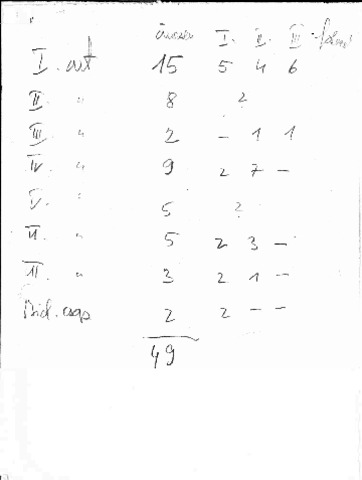 I. II. III.
I. oszt 15 5 4 6
II. " 8 ?
III. " 2 - 1 1
IV. " 9 2 7 -
V. " 5 ?
VI. " 5 2 3 -
VII. " 3 2 1 -
2 2 - -
49